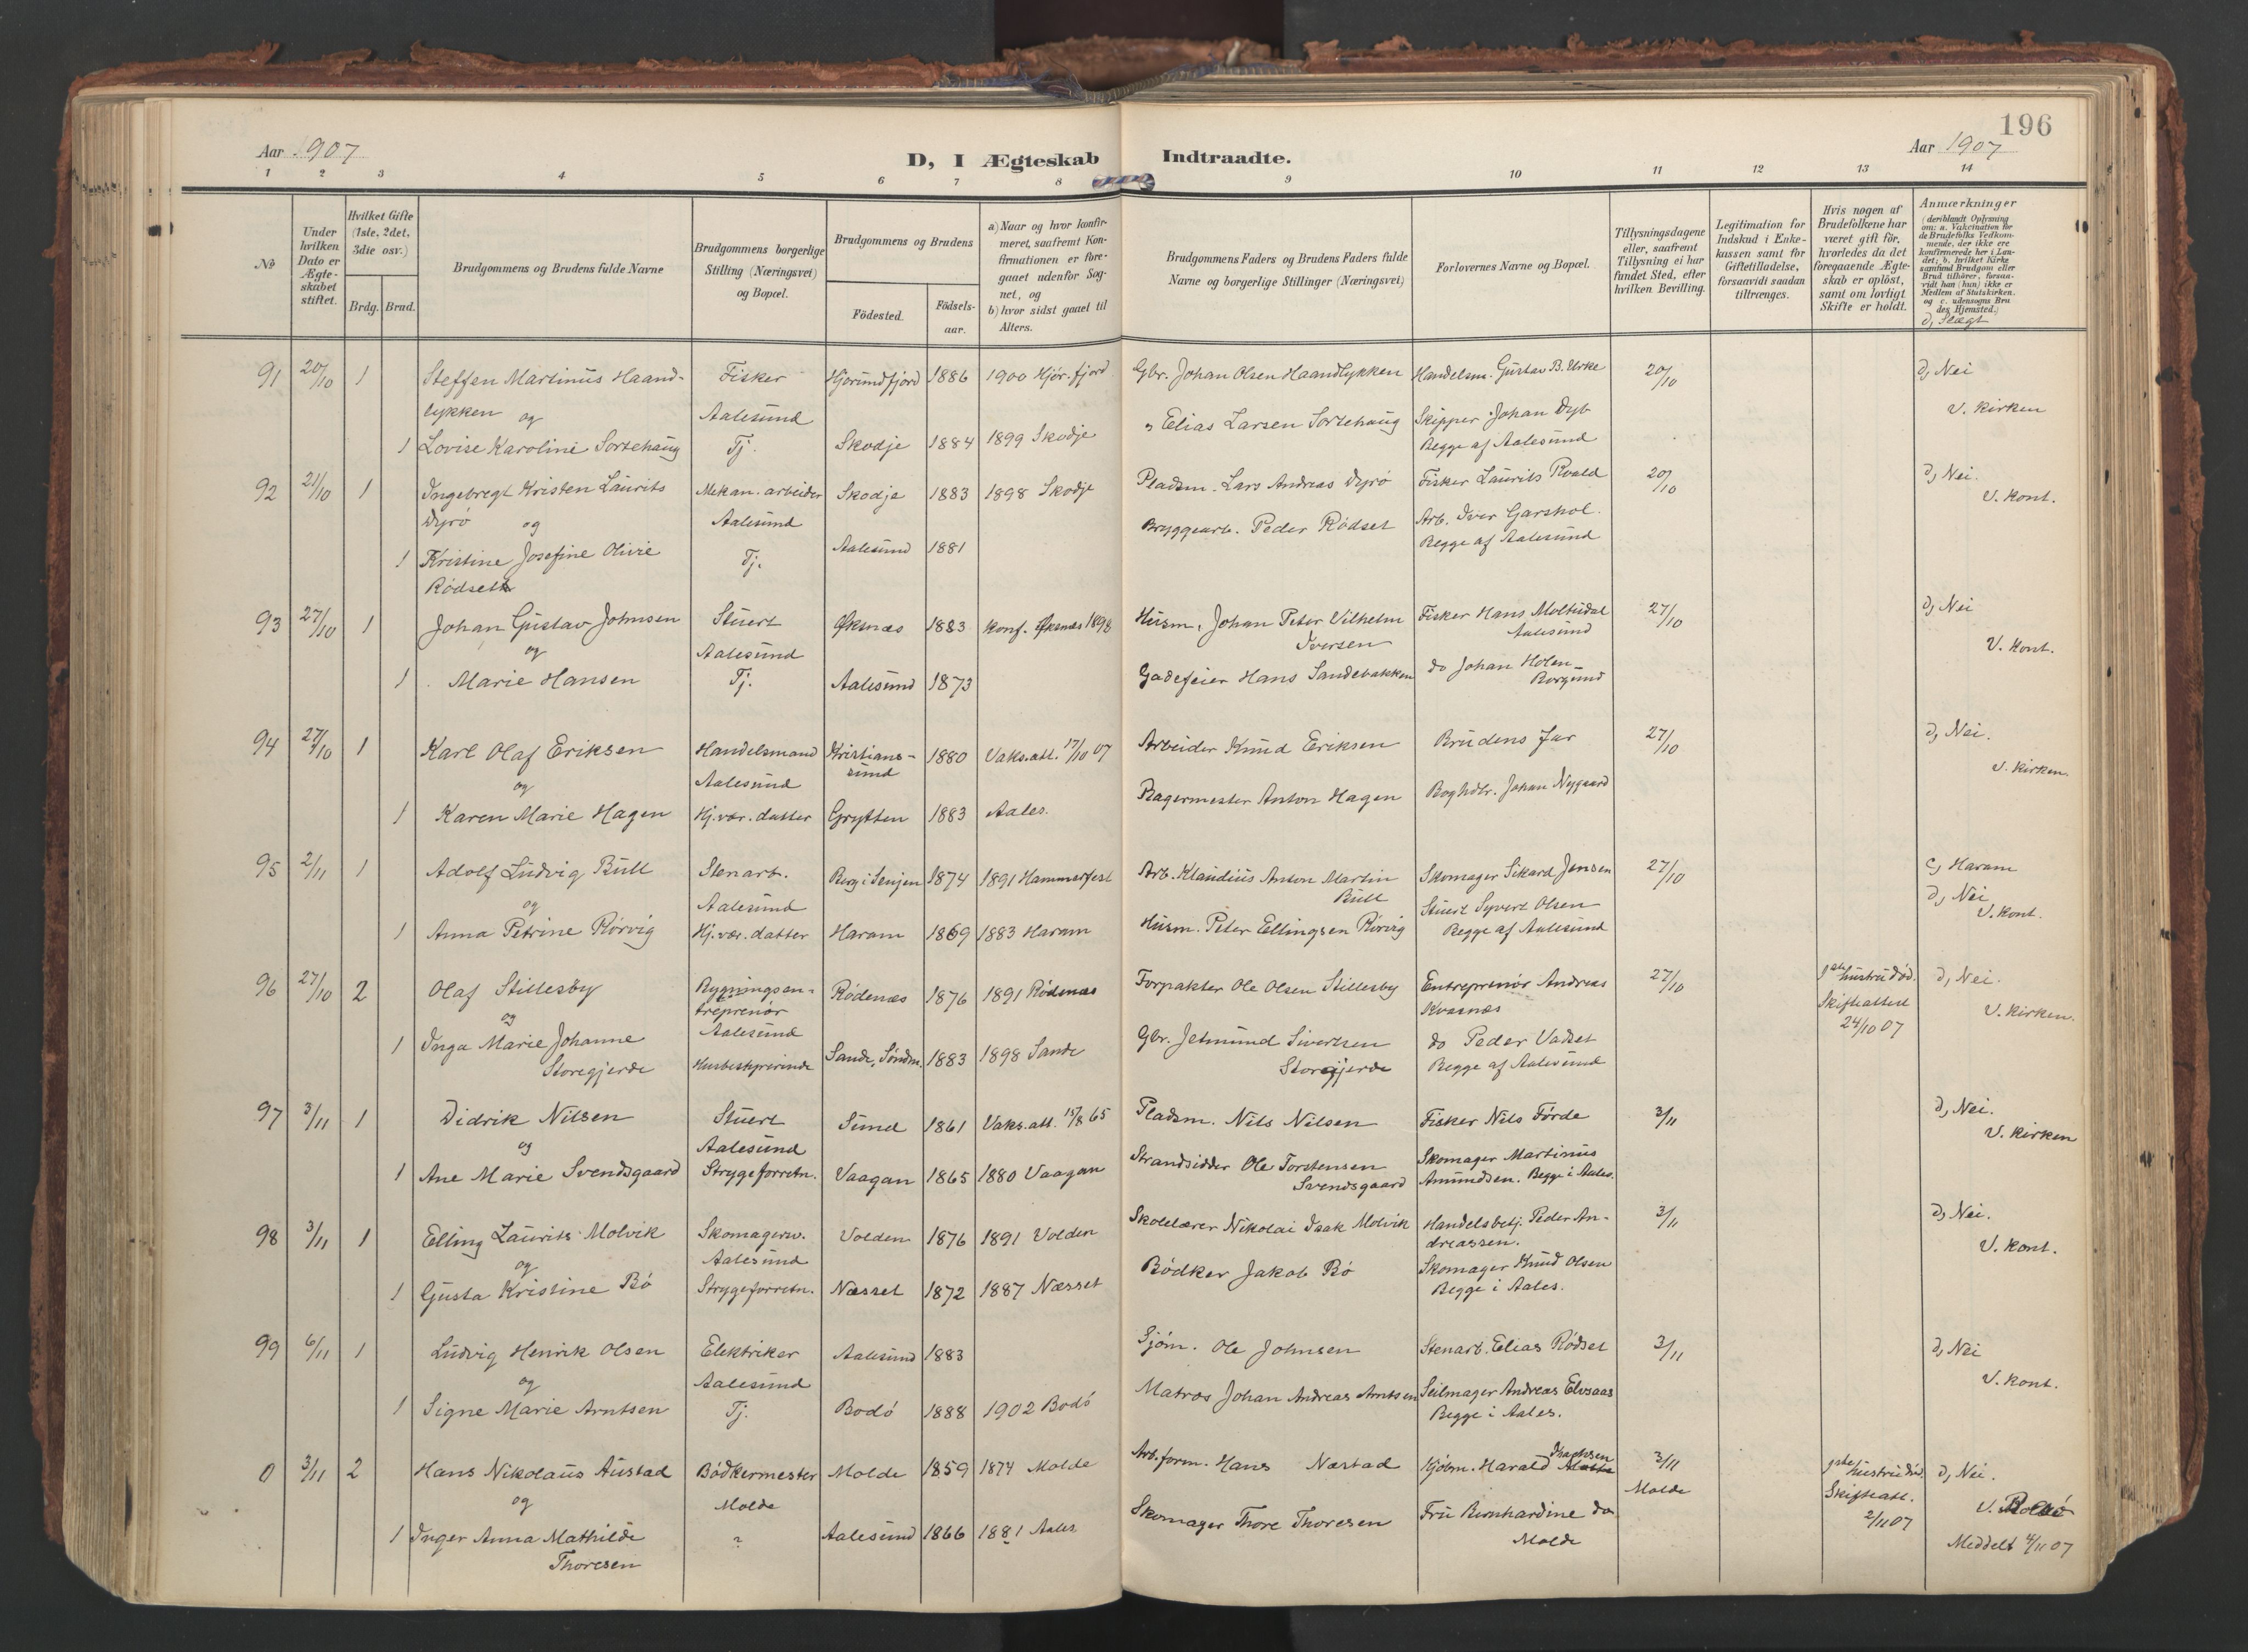 196
Aar 1907
D, I Ægteskab Indtraadte.
Aar 1907
1 2 3 4 5 6 7 8 9 10 11 12 13 14
№
Under hvilken Dato er Ægteskabet stiftet.
Hvilket Gifte (1ste, 2det, 3die osv.)
Brdg. Brud.
Brudgommens og Brudens fulde Navne
Brudgommens borgerlige Stilling (Næringsvei) og Bopæl.
Brudgommens og Brudens
Födested.
Födsels-aar.
a) Naar og hvor konfirmeret, saafremt Konfirmationen er foregaaet udenfor Sognet, og
b) hvor sidst gaaet til Alters.
Brudgommens Faders og Brudens Faders fulde Navne og borgerlige Stillinger (Næringsvei)
Forlovernes Navne og Bopæl.
Tillysningsdagene eller, saafremt Tillysning ei har fundet Sted, efter hvilken Bevilling.
Legitimation for Indskud i Enkekassen samt for Giftetilladelse, forsaavidt saadan tiltrænges.
Hvis nogen af Brudefolkene har været gift för, hvorledes da det foregaaende Ægteskab er oplöst, samt om lovligt Skifte er holdt.
Anmærkninger
(deriblandt Oplysning om: a. Vakcination for de Brudefolks Vedkommende, der ikke ere konfirmerede her i Landet; b. hvilket Kirkesamfund Brudgom eller Brud tilhörer, forsaavidt han (hun) ikke er Medlem af Statskirken. og c. udensogns Brudes Hjemsted.)
d, Slægt
91 20/10 1 Steffen Martinus Haand- Fisker Hjorundfjord 1886 1900 Hjör.fjord Gbr. Johan Olsen Haandlykken Handelsm. Gustav B. Urke 20/10 d, Nei
lykken og Aalesund " Elias Larsen Sortehaug Skipper Johan Dyb V. Kirken
1 Lovise Karoline Sortehaug Tj. Skodje 1884 1899 Skodje Begge af Aalesund
92 21/10 1 Ingebregt Kristen Laurits Mekan. arbeider Skodje 1883 1898 Skodje Pladsm. Lars Andreas Dyrö Fisker Laurits Roald 20/10 d, Nei.
Dyrö og Aalesund Bryggearb. Peder Rödset Arb. Iver Garshol. V. Kont.
1 Kristine Josefine Olivie Tj. Aalesund 1881 Begge af Aalesund
Rödset
93 27/10 1 Johan Gustav Johnsen Stuert Øksnæs 1883 Konf. Øksnæs 1898 Husm. Johan Peter Vilhelm Fisker Hans Moltudal 27/10 d, Nei
og Aalesund Iversen Aalesund V. Kont.
1 Marie Hansen Tj. Aalesund 1873 Gadefeier Hans Sandebakken do Johan Holen - Borgund
94 27/10 1 Karl Olaf Eriksen Handelsmand Kristianssund 1880 Vaks.att. 17/10 07 Arbeider Knud Eriksen Brudens far 27/10 d, Nei.
og Aalesund V. Kirken.
1 Karen Marie Hagen Hj.vær. datter Grytten 1883 Aales. Bagermester Anton Hagen Boghdlr. Johan Nygaard
95 2/11 1 Adolf Ludvig Bull Stenarb. Berg i Senjen 1874 1891 Hammerfest Arb. Klaudius Anton Martin Skomager Sikard Jensen 27/10 c, Haram
og Aalesund Bull Stuert Syvert Olsen d, Nei
1 Anna Petrine Rörvig Hj.vær. datter Haram 1869 1883 Haram Husm. Peter Ellingsen Rörvig Begge af Aalesund V. Kont.
96 27/10 2 Olaf Stillesby Bygningsen- Rödenæs 1876 1891 Rödenæs Forpakter Ole Olsen Stillesby Entreprenör Andreas 27/10 1ste hustru död. d, Nei.
og treprenör Kvasnæs Skifteattest V. Kirken.
1 Inga Marie Johanne Aalesund Gbr. Jetmund Sivertsen do Peder Vadset 24/10 07
Storegjerde Husbestyrerinde Sande, Söndm. 1883 1898 Sande Storegjerde Begge af Aalesund
97 3/11 1 Didrik Nilsen Stuert Sund 1861 Vaks.att. 15/8 65 Pladsm. Nils Nilsen Fisker Nils Förde 3/11 d, Nei.
og Aalesund Strandsidder Ole Torstensen Skomager Martinus V. Kirken
1 Ane Marie Svendsgaard Strygeforretn. Vaagan 1865 1880 Vaagan Svendsgaard Amundsen. Begge i Aales.
98 3/11 1 Elling Laurits Molvik Skomagersv. Volden 1876 1891 Volden Skolelærer Nikolai Isak Molvik Handelsbetj. Peder An- 3/11 d, Nei.
og Aalesund dreassen. V. Kont.
1 Gusta Kristine Bö Strygeforretn. Næsset 1872 1887 Næsset Bödker Jakob Bö Skomager Knud Olsen
Begge i Aales.
99 6/11 1 Ludvig Henrik Olsen Elektriker Aalesund 1883 Sjöm. Ole Johnsen Stenarb. Elias Rödset 3/11 d, Nei
og Aalesund Matros Johan Andreas Arntsen Seilmager Andreas Elvsaas V. Kont.
1 Signe Marie Arntsen Tj. Bodö 1888 1902 Bodö Begge i Aales.
0 3/11 2 Hans Nikolaus Austad Bödkermester Molde 1859 1874 Molde Arb.form. Hans Næstad Kjöbm. Harald 3/11 1ste hustru död. d, Nei.
og Molde Molde Skifteatt. V.
1 Inger Anna Mathilde ? Aalesund 1866 1881 Aales. Skomager Thore Thoresen Fru Bernhardine do 2/11 07
Thoresen Molde Meddelt 4/11 07